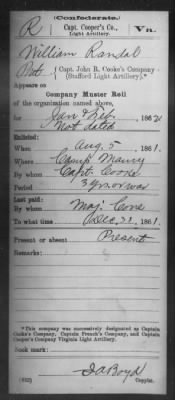 (Confederate.)
R Capt. Cooper's Co., Vn.
Light Artillery.
William Randal
Pvt { Capt. John R. Cooke's Company
(Stafford Light Artillery).*
Appears on
Company Muster Roll
of the organization named above,
for Jan & Feb, 1862
Not dated
Enlisted:
When Aug. 5, 1861.
Where Camp Maury
By whom Capt. Cooke
Period 3 yrs or war
Last paid:
By whom Maj. Cone
To what time Dec. 31, 1861.
Present or absent Present
Remarks:
*This company was successively designated as Captain
Cooke's Company, Captain French's Company, and Captain
Cooper's Company Virginia Light Artillery.
Book mark:
(642) J A Boyd
Copyist.